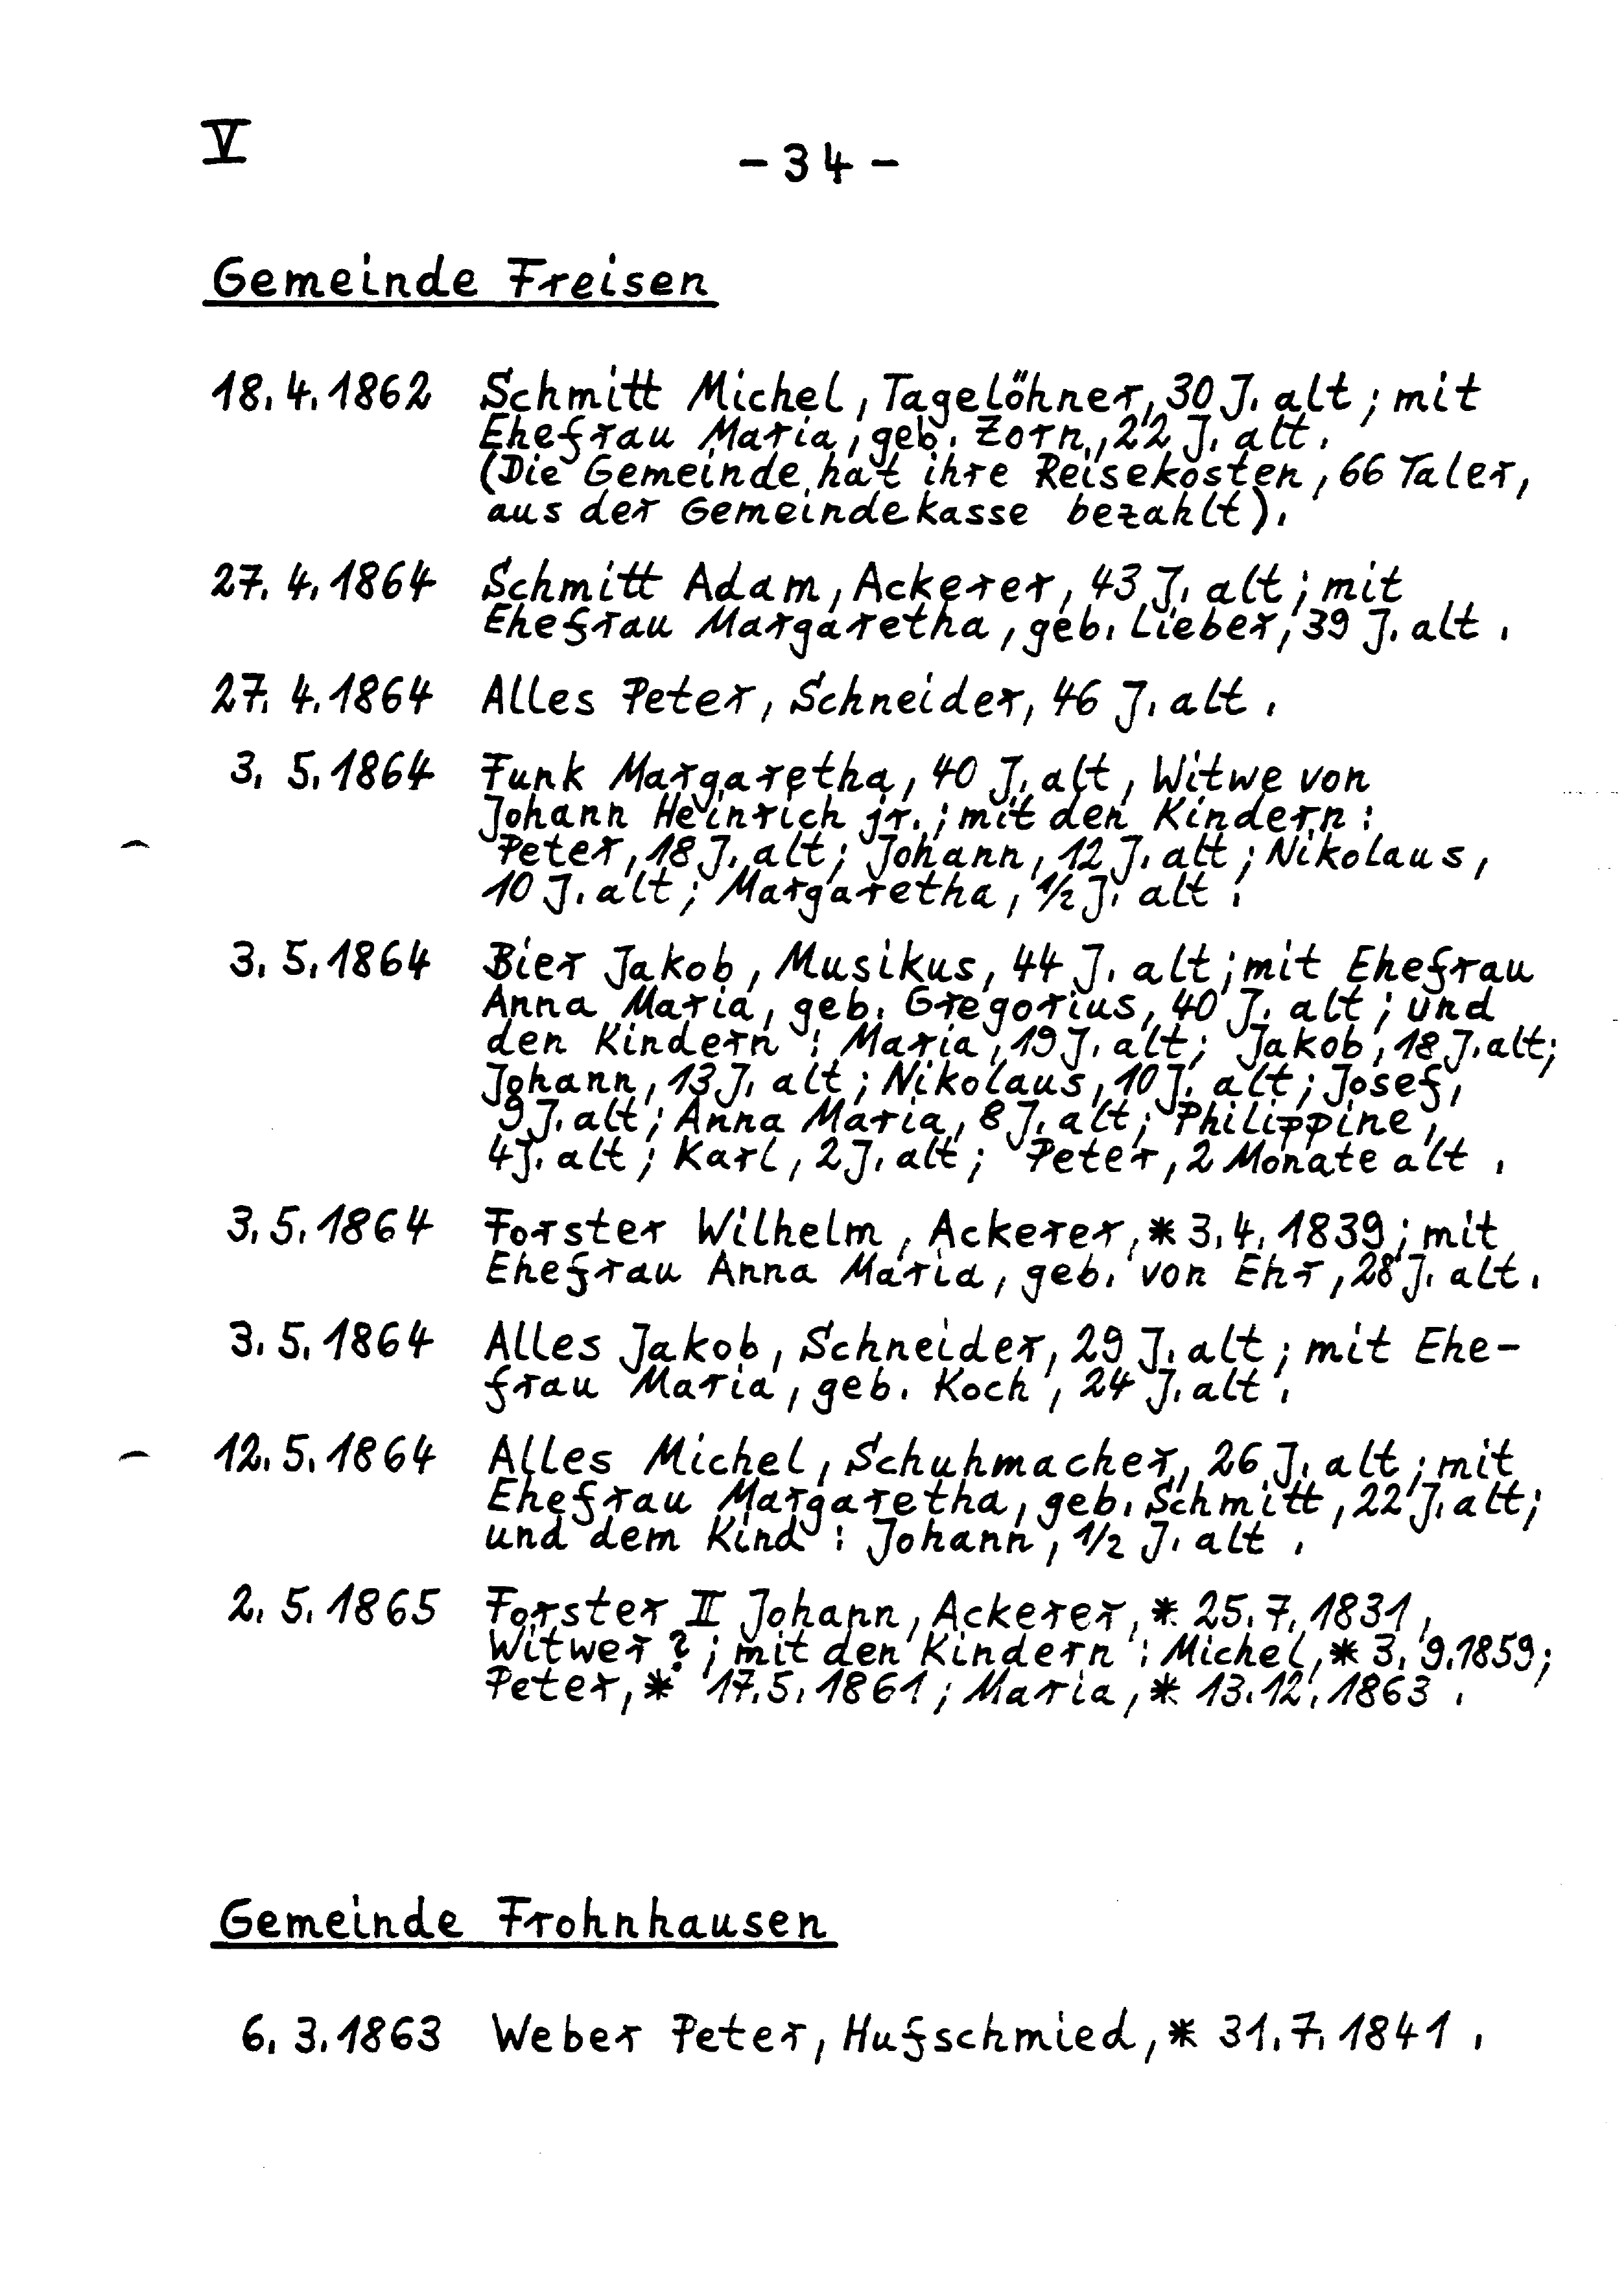 V
- 34 -
Gemeinde Freisen
18. 4. 1862 Schmitt Michel, Tagelöhner, 30 J. alt; mit
Ehefrau Maria, geb. Zorn, 22 J. alt.
(Die Gemeinde hat ihre Reisekosten, 66 Taler,
aus der Gemeindekasse bezahlt).
27. 4. 1864 Schmitt Adam, Ackerer, 43 J. alt; mit
Ehefrau Margaretha, geb. Lieber, 39 J. alt.
27. 4. 1864 Alles Peter, Schneider, 46 J. alt.
3. 5. 1864 Funk Margaretha, 40 J. alt, Witwe von
Johann Heinrich jr.; mit den Kindern:
Peter, 18 J. alt; Johann, 12 J. alt; Nikolaus,
10 J. alt; Margaretha, 1/2 J. alt.
3. 5. 1864 Bier Jakob, Musikus, 44 J. alt; mit Ehefrau
Anna Maria, geb. Gregorius, 40 J. alt; und
den Kindern: Maria, 19 J. alt; Jakob, 18 J. alt;
Johann, 13 J. alt; Nikolaus, 10 J. alt; Josef,
9 J. alt; Anna Maria, 8 J. alt; Philippine,
4 J. alt; Karl, 2 J. alt; Peter, 2 Monate alt.
3. 5. 1864 Forster Wilhelm, Ackerer, * 3. 4. 1839; mit
Ehefrau Anna Maria, geb. von Ehr, 28 J. alt.
3. 5. 1864 Alles Jakob, Schneider, 29 J. alt; mit Ehe-
frau Maria, geb. Koch, 24 J. alt.
12. 5. 1864 Alles Michel, Schuhmacher, 26 J. alt; mit
Ehefrau Margaretha, geb. Schmitt, 22 J. alt;
und dem Kind: Johann, 1/2 J. alt.
2. 5. 1865 Forster II Johann, Ackerer, * 25. 7. 1831,
Witwer?; mit den Kindern: Michel, * 3. 9. 1859;
Peter, * 17. 5. 1861; Maria, * 13. 12. 1863.
Gemeinde Frohnhausen
6. 3. 1863 Weber Peter, Hufschmied, * 31. 7. 1841.